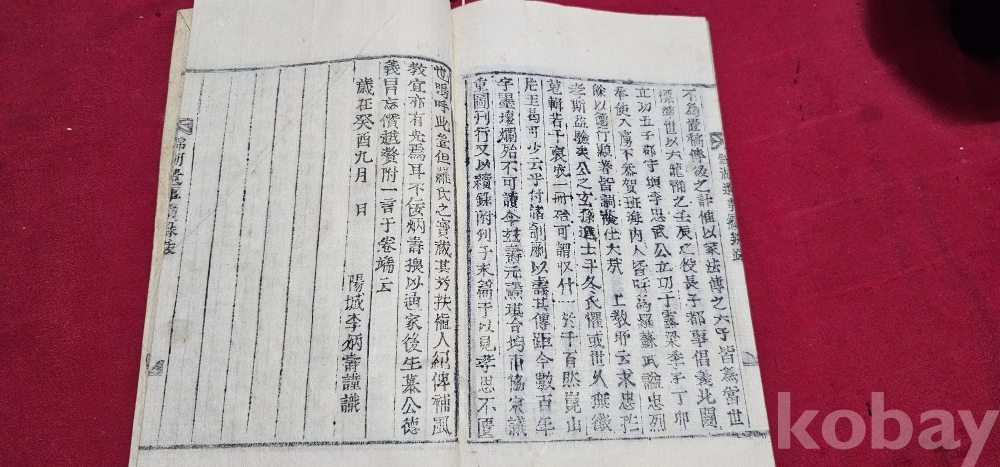 不爲置稿傳後之計惟以家法傳之六子皆爲當世
標準世以六龍稱之壬辰之役長子都事倡義北關
立功五子都守頭李忠武公立功于露梁季子丁卯
奉使入虜不參賀班海內人皆呼爲羅蘇武謚忠烈
餘以儒行顯著皆蒙 仕大夫 上敎耶云求忠於
孝斯益驗矣公之玄孫進士斗冬氏懼或世久無徵
蒐輯若干裒成一冊殆可謂收什一於千百然崑山
片玉曷可少云乎付諸剞劂以壽其傳距今數百年
字墨壞爛殆不可讀今玆壽元壽琪合均甫協衆議
重圖刊行又以續錄附刊于末篇于以見孝思不匱
世嗚呼此豈但羅氏之寶藏其於扶樹人紀俾補風
敎宜亦有光焉耳不佞炳壽操以通家後生慕公德
義冒忘僭越贅附一言于卷端云
歲在癸酉九月 日
陽城李炳壽謹識
kobay